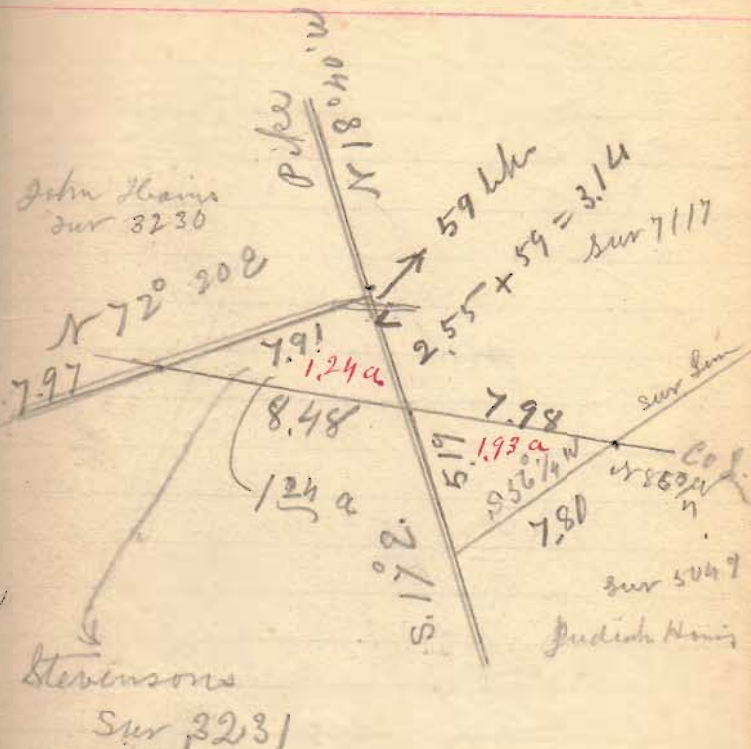 Pike
N 18° 40' W
John Hains
Sur 3230
59 lks
2.55 x 59 = 3.14
Sur 7117
N 72° 20 E
7.97
7.91
1.24 a
8.48
7.98
Sur Line
1.93 a
5.19
S 56° 1/4 W
7.80
Co L.
N 85°
1 24 a
S. 17° E.
Sur 5049
Judiah
Stevensons
Sur 3231